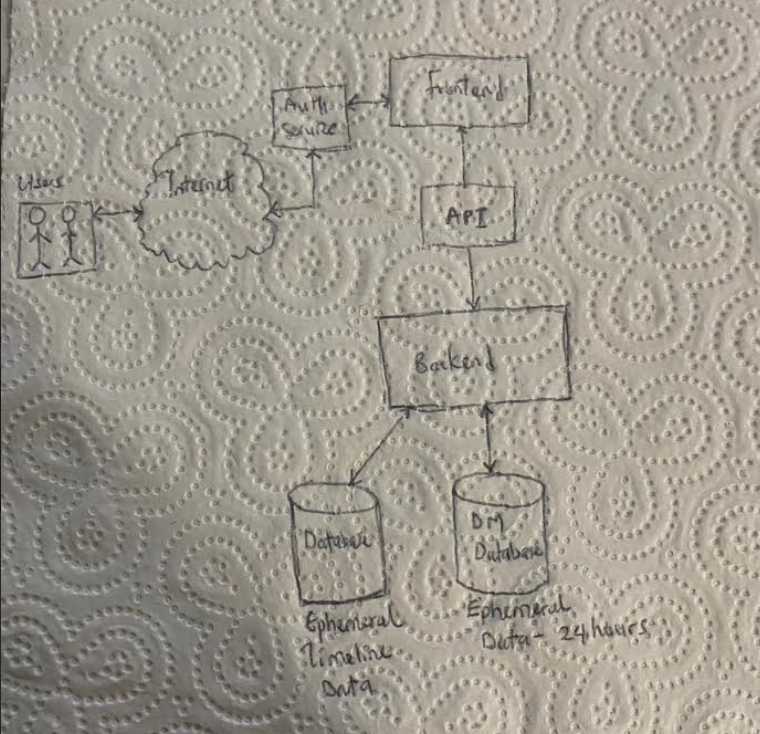 Users
Internet
Auth
Service
Frontend
API
Backend
Database
Ephemeral
Timeline
Data
DM
Database
Ephemeral
Data - 24 hours